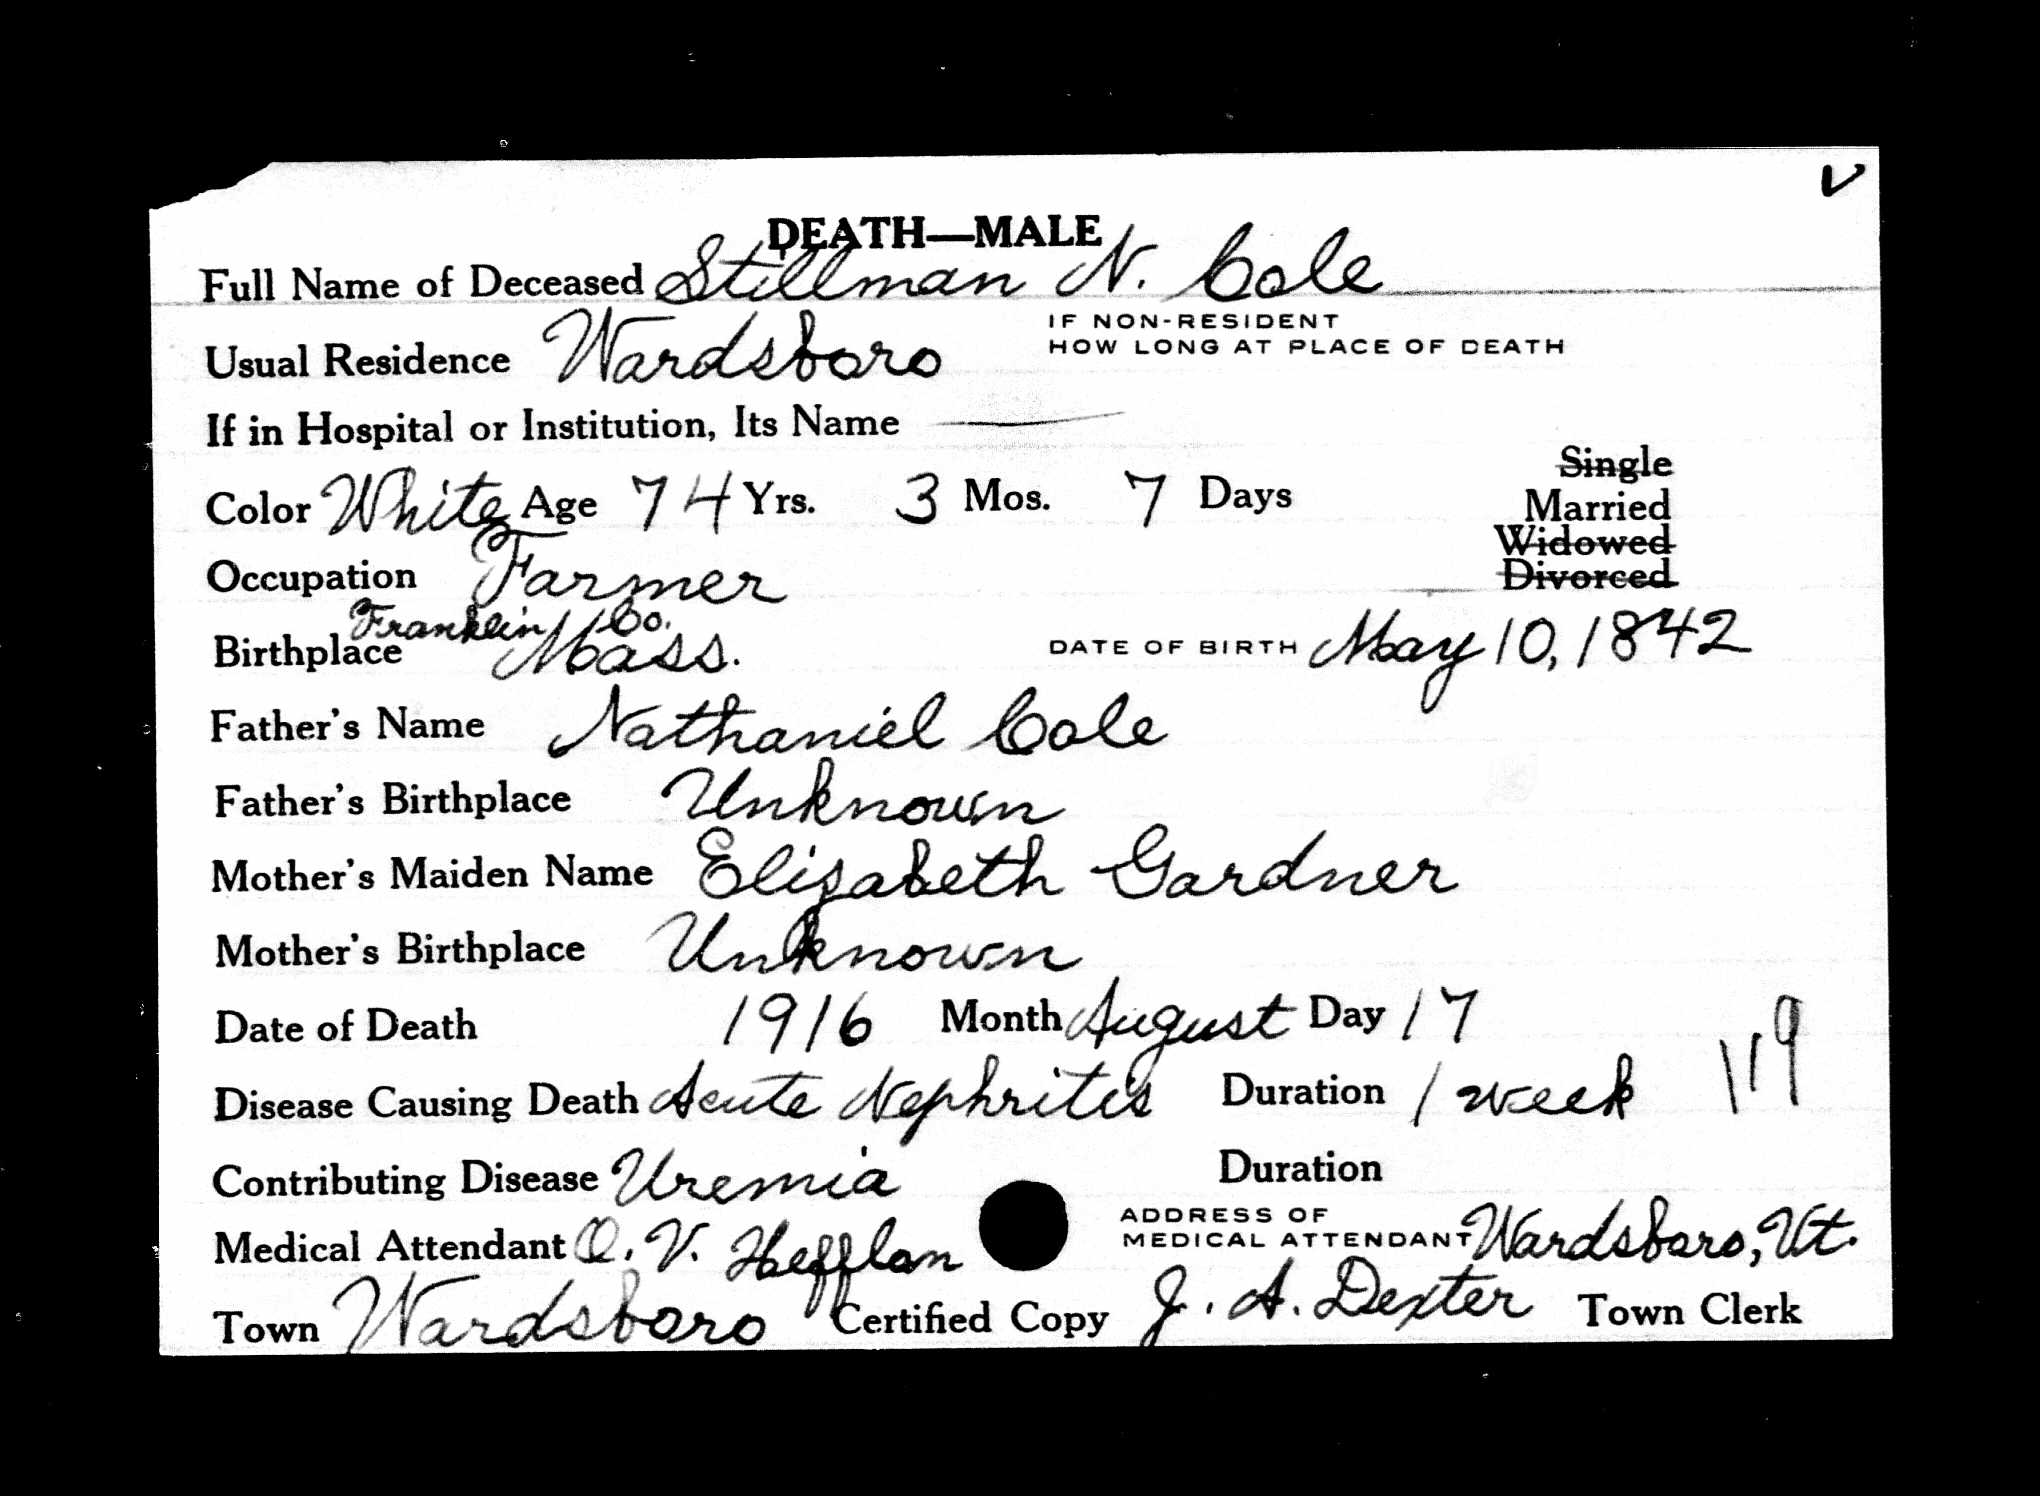 V
DEATH—MALE
Full Name of Deceased Stillman N. Cole
Usual Residence Wardsboro IF NON-RESIDENT HOW LONG AT PLACE OF DEATH
If in Hospital or Institution, Its Name —
Color White Age 74 Yrs. 3 Mos. 7 Days
Single
Married
Widowed
Divorced
Occupation Farmer
Birthplace Franklin Co. Mass. DATE OF BIRTH May 10, 1842
Father's Name Nathaniel Cole
Father's Birthplace Unknown
Mother's Maiden Name Elizabeth Gardner
Mother's Birthplace Unknown
Date of Death 1916 Month August Day 17
Disease Causing Death Acute Nephritis Duration 1 week 119
Contributing Disease Uremia Duration
Medical Attendant O. V. Hefflon ADDRESS OF MEDICAL ATTENDANT Wardsboro, Vt.
Town Wardsboro Certified Copy J. A. Dexter Town Clerk